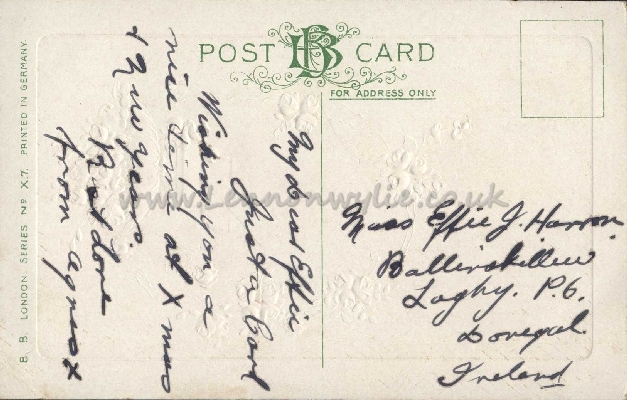 POST CARD
BB
FOR ADDRESS ONLY
B B LONDON SERIES No X.7. PRINTED IN GERMANY.
My Dear Effie
Just a Card
Wishing you a
nice time at Xmas
& New year.
Best love
from Agness x
www.Lennonwylie.co.uk
Miss Effie J. Harron.
Laghy. P.O.
Donegal
Ireland